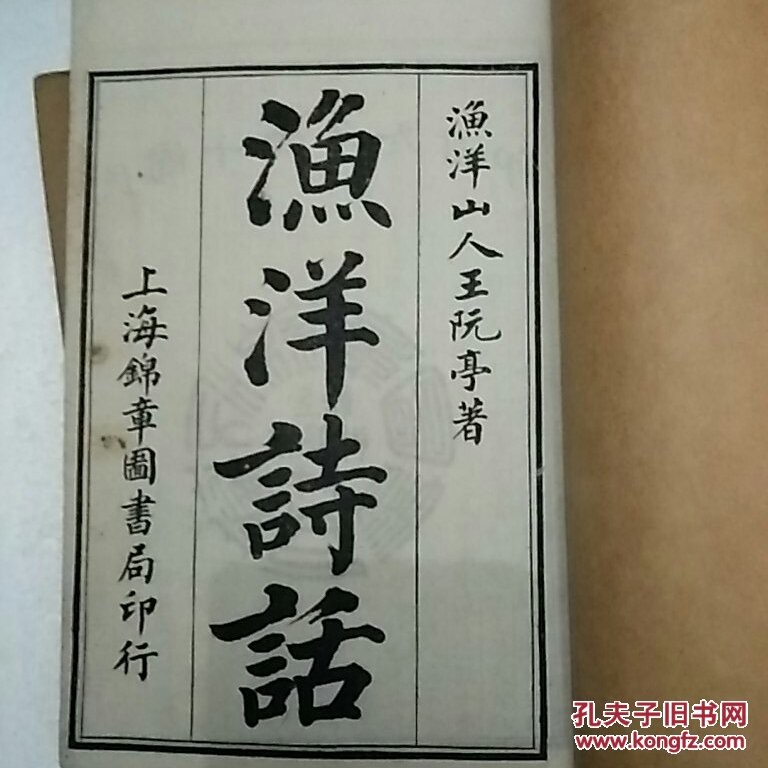 漁洋山人王阮亭著
漁洋詩話
上海錦章圖書局印行
孔夫子旧书网
www.kongfz.com